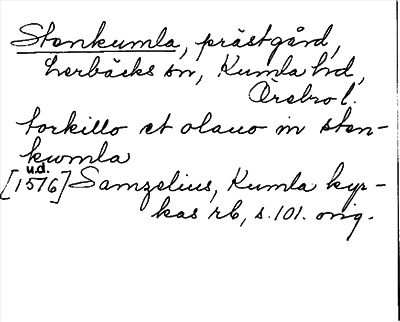 Stenkumla, prästgård,
Lerbäcks sn, Kumla hd,
Örebro l.
torkillo et olauo in sten-
kwmla
u.d.
[1576] Samzelius, Kumla kyr-
kas rb, s. 101. orig.